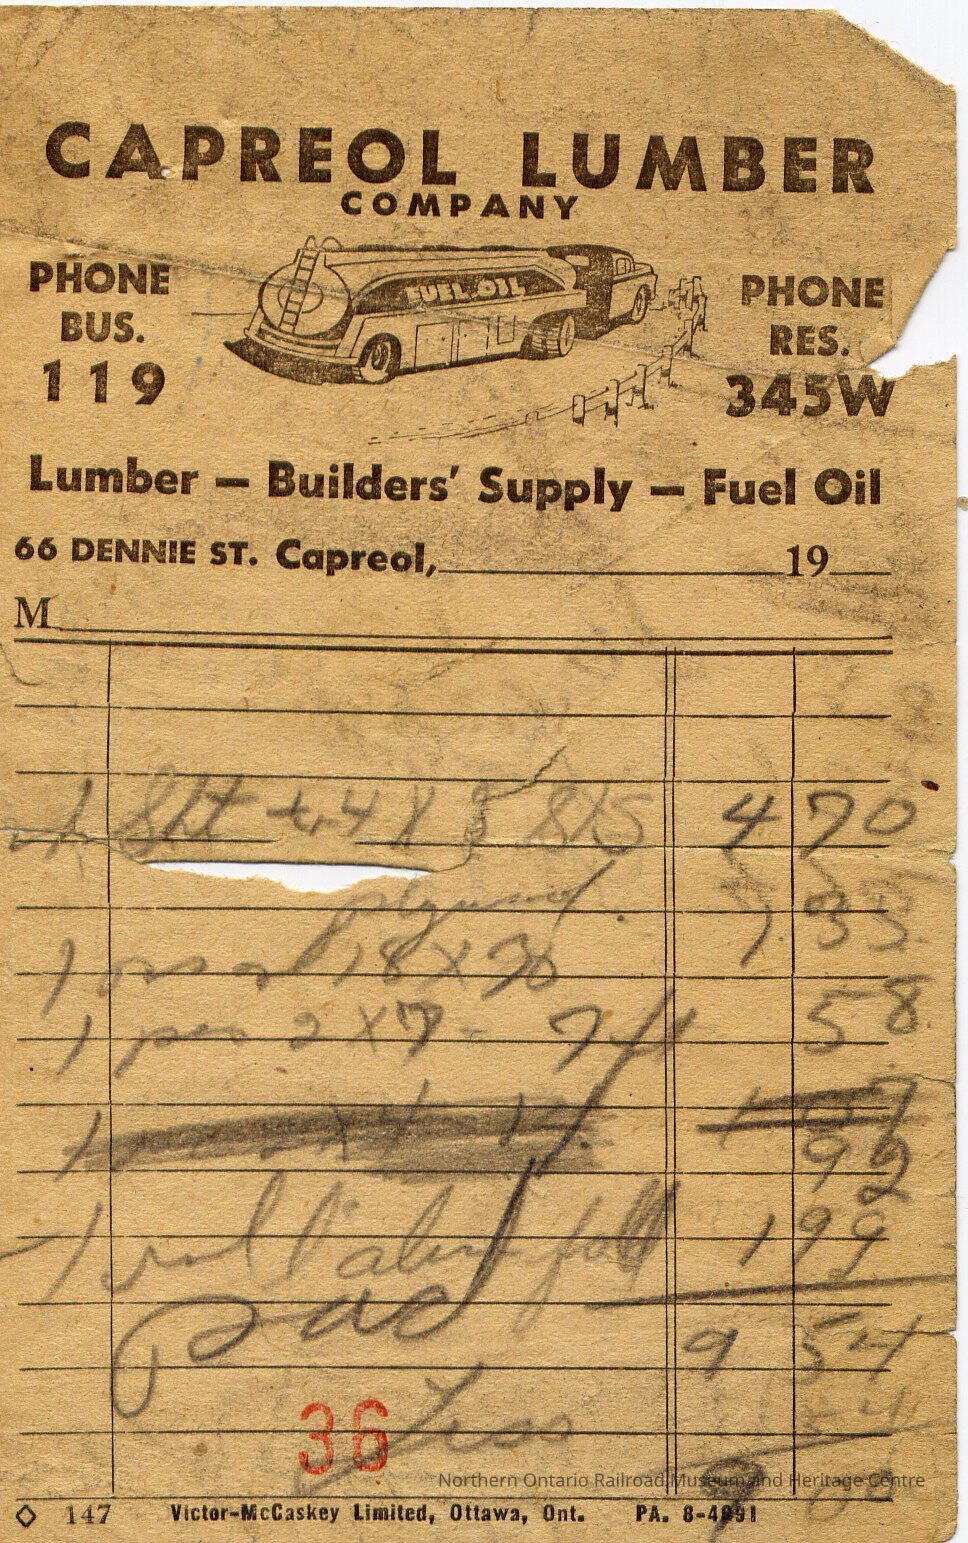 CAPREOL LUMBER
COMPANY
PHONE
BUS.
119
FUEL OIL
PHONE
RES.
345W
Lumber — Builders' Supply — Fuel Oil
66 DENNIE ST. Capreol, 19
M
1 Sht 4 X 8 4 70
plywood 1.33
1 18 X 30
1 pce 2 X 7 - 7 ft 58
1
1 roll 1 99
Paid 9 54
Less 54
36
9 00
Northern Ontario Railroad Museum and Heritage Centre
147 Victor-McCaskey Limited, Ottawa, Ont. PA. 8-4091